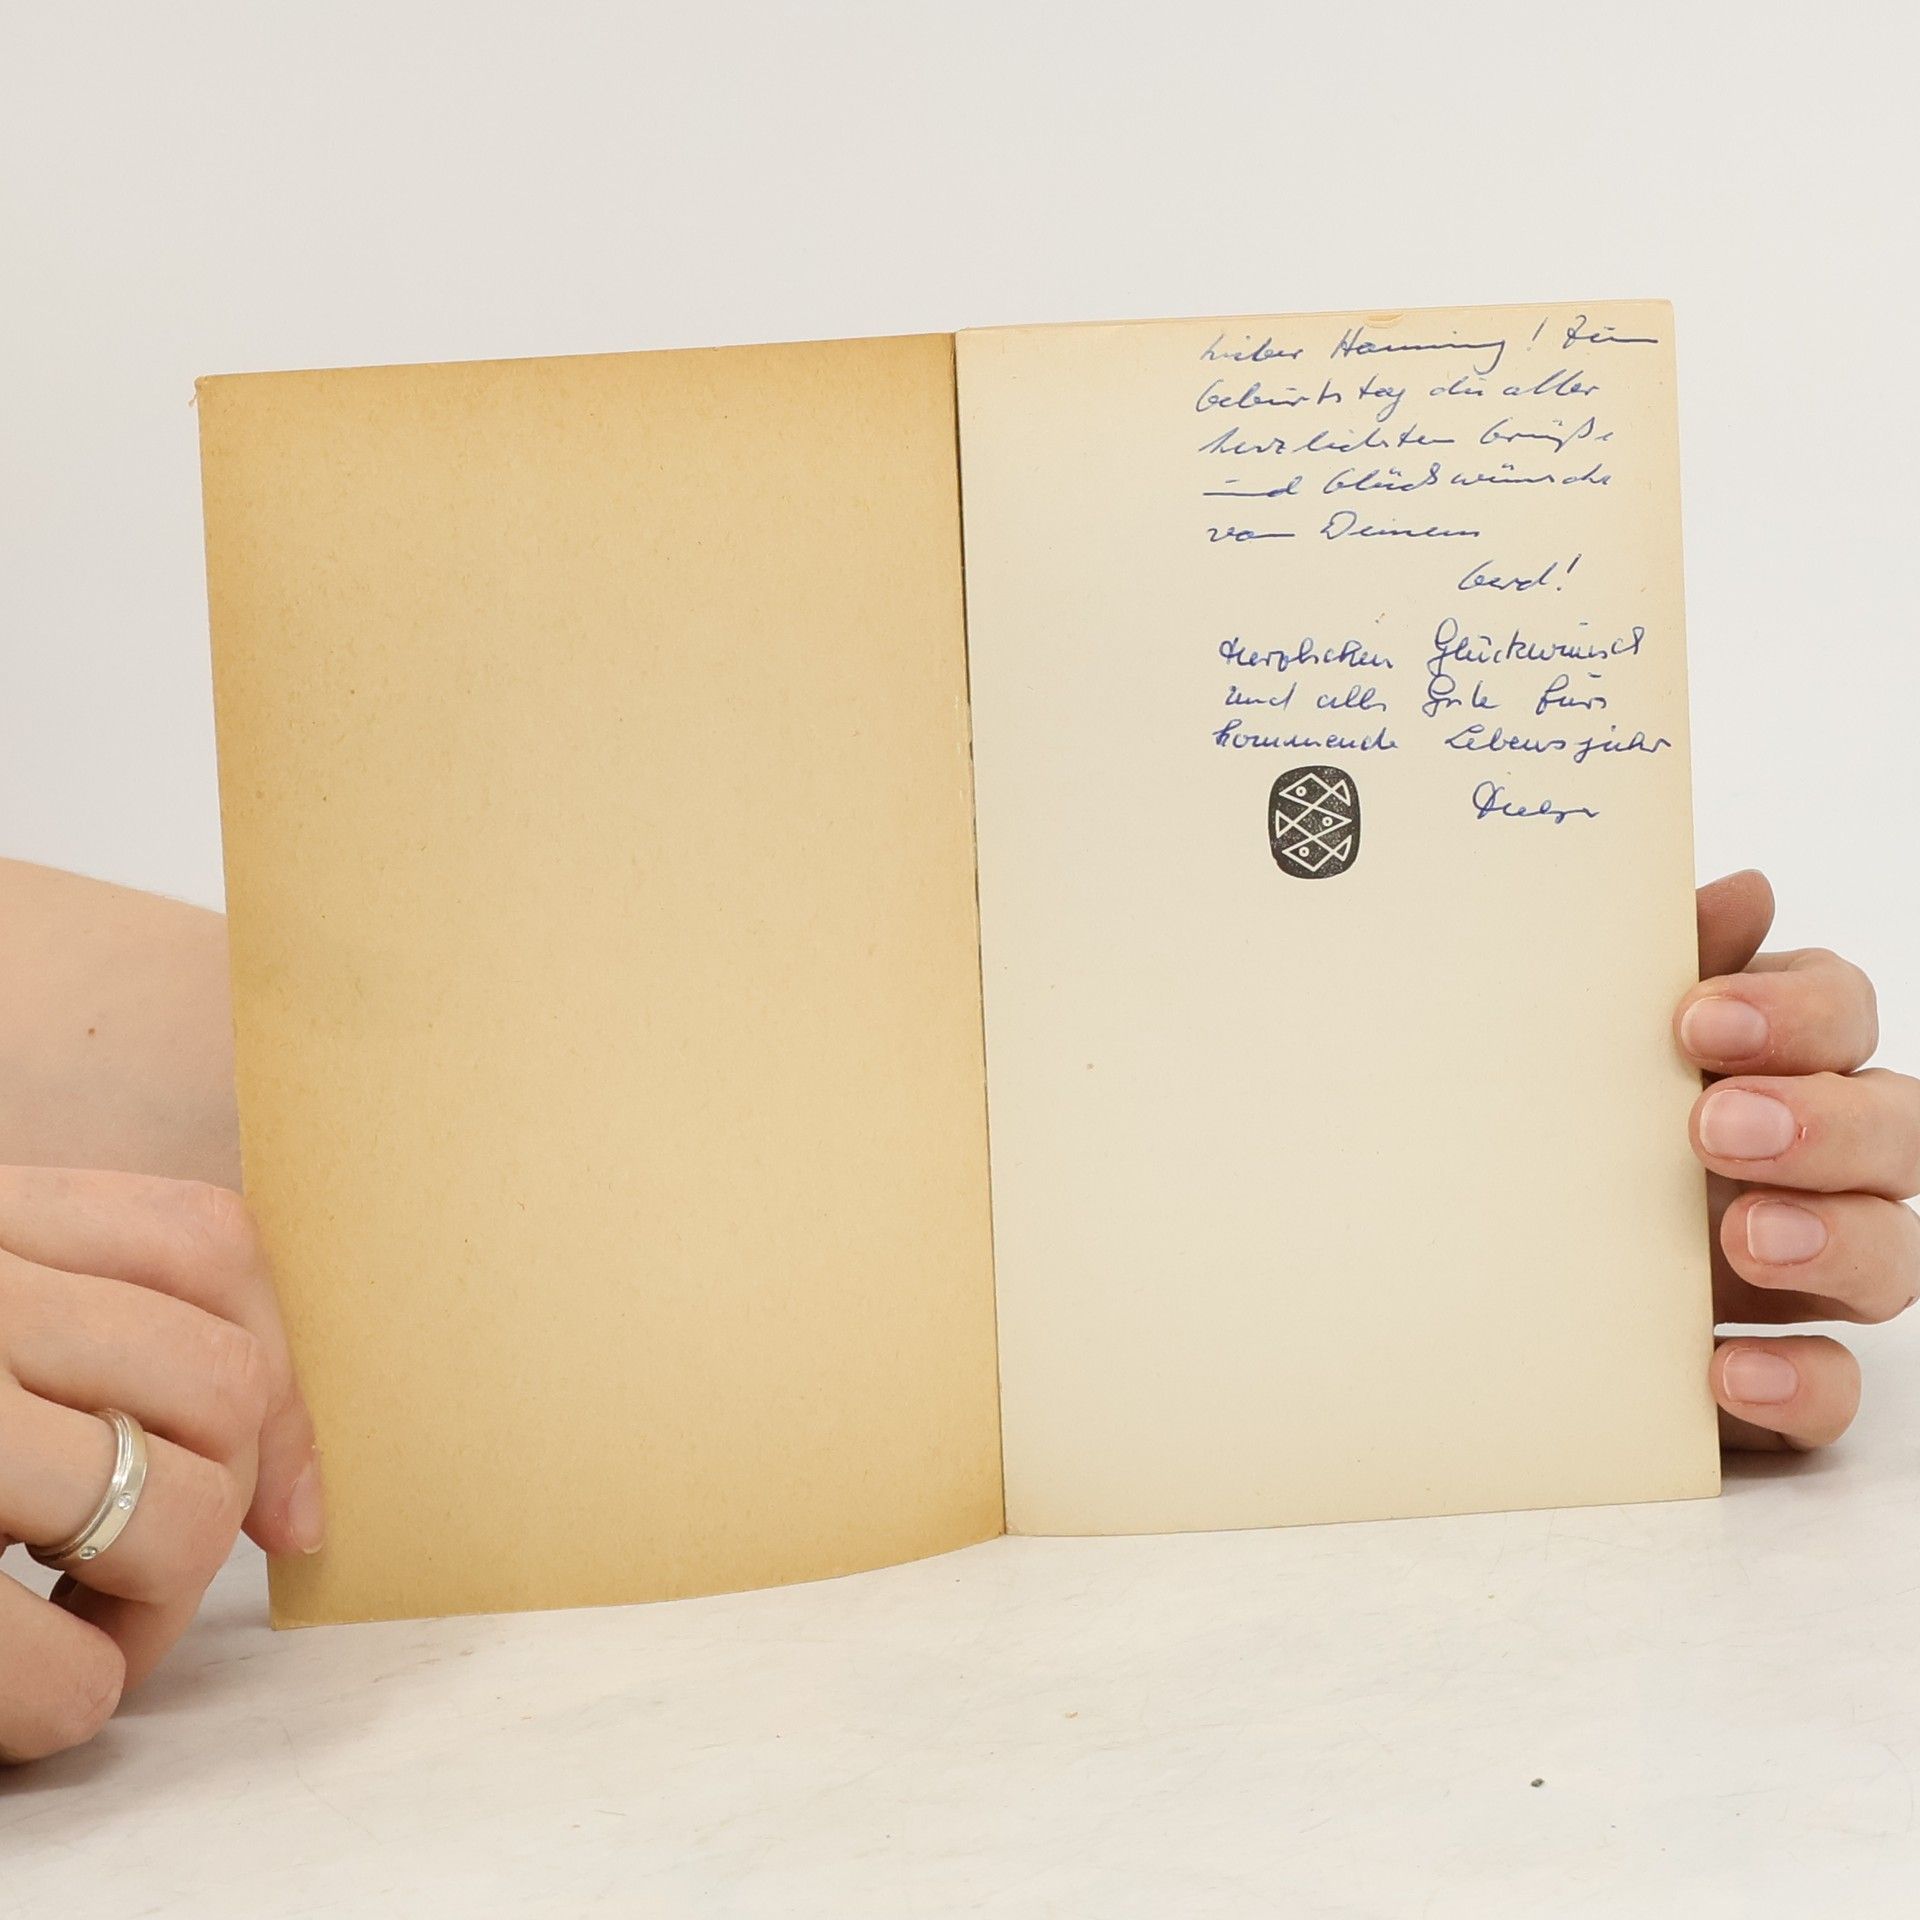 Lieber Henning! Zum
Geburtstag die aller
herzlichsten Grüße
und Glückwünsche
von Deinem
Gerd!
Herzlichen Glückwunsch
und alles Gute fürs
kommende Lebensjahr